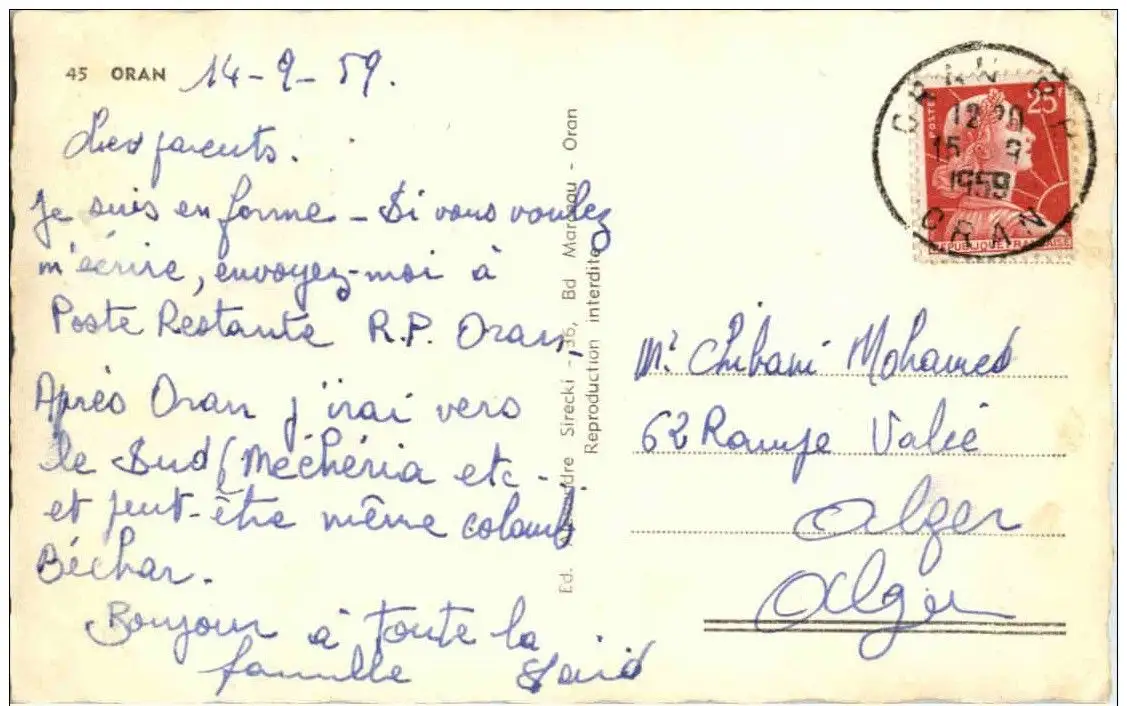 45 ORAN 14-9-59.
Les parents.
Je suis en forme - Si vous voulez
m'écrire, envoyez-moi à
Poste Restante R.P. Oran.
Après Oran j'irai vers
le Sud (Méchéria etc -.
et peut-être même colomb
Béchar.
Bonjour à toute la
famille Saïd
Ed. dre Sirecki - 36, Bd Marceau - Oran
Reproduction interdite
ORAN R.P
12
15 9
1959
ORAN
POSTES
25F
REPUBLIQUE FRANCAISE
Mr Chibani Mohamed
62 Rampe Valée
Alger
Alger